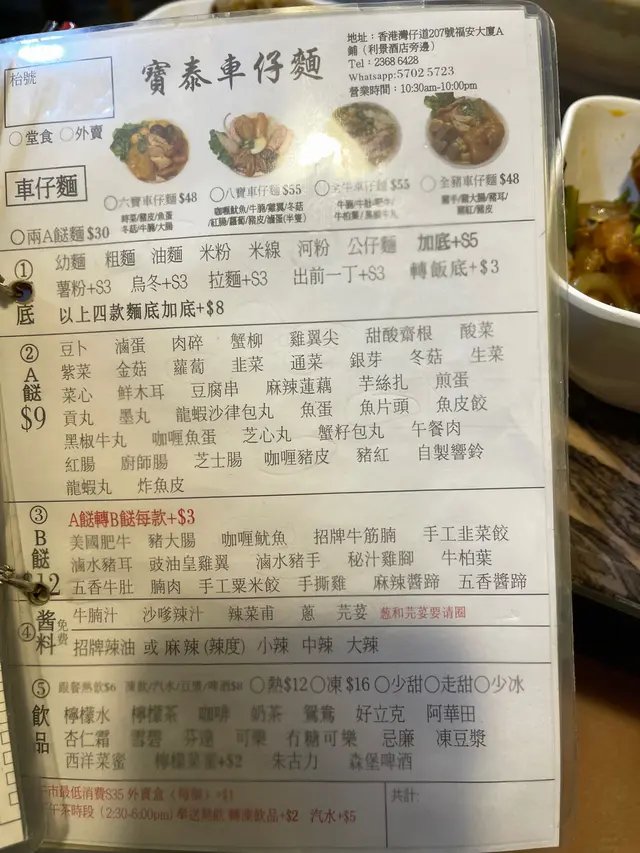 寶泰車仔麵
地址：香港灣仔道207號福安大廈A
鋪（利景酒店旁邊）
Tel：2368 6428
Whatsapp:5702 5723
營業時間：10:30am-10:00pm
枱號
○堂食 ○外賣
車仔麵
○六寶車仔麵 $48
時菜/豬皮/魚蛋
冬菇/牛腩/大腸
○八寶車仔麵 $55
咖喱魷魚/牛腩/雞翼/冬菇
/紅腸/蘿蔔/豬皮/滷蛋(半隻)
○全牛車仔麵 $55
○全豬車仔麵 $48
○兩A餸麵 $30
① 底
幼麵 粗麵 油麵 米粉 米線 河粉 公仔麵 加底+$5
薯粉+$3 烏冬+$3 拉麵+$3 出前一丁+$3 轉飯底+$3
以上四款麵底加底+$8
② A餸 $9
豆卜 滷蛋 肉碎 蟹柳 雞翼尖 甜酸齋根 酸菜
紫菜 金菇 蘿蔔 韭菜 通菜 銀芽 冬菇 生菜
菜心 鮮木耳 豆腐串 麻辣蓮藕 芋絲扎 煎蛋
貢丸 墨丸 龍蝦沙律包丸 魚蛋 魚片頭 魚皮餃
黑椒牛丸 咖喱魚蛋 芝心丸 蟹籽包丸 午餐肉
紅腸 廚師腸 芝士腸 咖喱豬皮 豬紅 自製響鈴
龍蝦丸 炸魚皮
③ B餸 12
A餸轉B餸每款+$3
美國肥牛 豬大腸 咖喱魷魚 招牌牛筋腩 手工韭菜餃
滷水豬耳 豉油皇雞翼 滷水豬手 秘汁雞腳 牛柏葉
五香牛肚 腩肉 手工粟米餃 手撕雞 麻辣醬蹄 五香醬蹄
④ 酱料 免费
牛腩汁 沙嗲辣汁 辣菜甫 蔥 芫荽 葱和芫荽要请圈
招牌辣油 或 麻辣 (辣度) 小辣 中辣 大辣
⑤ 飲品
跟餐熱飲$6 凍飲/汽水/豆漿/啤酒$8 ○熱$12○凍 $16○少甜○走甜○少冰
檸檬水 檸檬茶 咖啡 奶茶 鴛鴦 好立克 阿華田
杏仁霜 雪碧 芬達 可樂 冇糖可樂 忌廉 凍豆漿
西洋菜蜜 檸檬菜蜜+$2 朱古力 森堡啤酒
市最低消費$35 外賣盒（每個）+$1
午茶時段 (2:30-6:00pm) 奉送熱飲 轉凍飲品+$2 汽水+$5
共計: